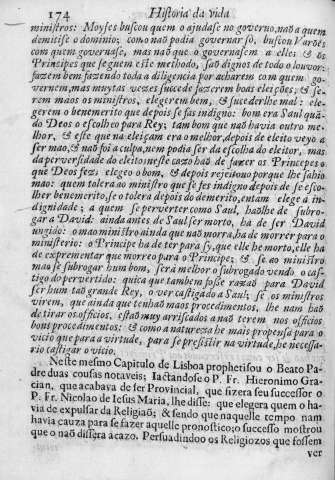 174 Historia da vida
ministros: Moyses buscou quem o ajudase no governo, naõ a quem
demitise o dominio; como naõ podia governar só, buscou Varões
com quem governase, mas naõ que o governasem a elles & os
Principes que seguem este methodo, saõ dignos de todo o louvor:
fazem bem fazendo toda a diligencia por acharem com quem go-
vernem, mas muytas vezes succede fazerem boas eleições, & se-
rem maos os ministros, elegerem bem, & sucederlhe mal: ele-
gerem o benemerito que depois se fas indigno: bom era Saul quã-
do Deos o escolheo para Rey; tam bom que naõ havia outro me-
lhor, & este que na eleiçam era o melhor, depois de eleito veyo a
ser mao, & naõ foi a culpa, nem podia ser da escolha do eleitor, mas
da perversidade do eleito: neste cazo haõ de fazer os Principes o
que Deos fez; elegeo o bom, & depois rejeitouo porque lhe sahio
mao: quem tolera ao ministro que se fes indigno depois de se esco-
lher benemerito, se o tolera depois do demerito, entam elege a in-
dignidade; a quem se perverter como Saul, haõlhe de subro-
gar a David: ainda antes de Saul ser morto, ha de ser David
ungido: o mao ministro ainda que naõ morra, ha de morrer para o
ministerio: o Principe ha de ter para sy, que elle he morto, elle ha
de exprementar que morreo para o Principe; & se ao ministro
mao se subrogar hum bom, será melhor o subrogado vendo o cas-
tigo do pervertido: quiça que tambem fosse razaõ para David
ser hum taõ grande Rey, o ver castigado a Saul; se os ministros
virem, que ainda que tenhaõ maos procedimentos, lhe nam haõ
de tirar os officios, estaõ muy arriscados a naõ terem nos officios
bons procedimentos: & como a natureza he mais propensa para o
vicio que para a virtude, para se presistir na virtude, he necessa-
rio castigar o vicio.
Neste mesmo Capitulo de Lisboa prophetisou o Beato Pa-
dre duas cousas notaveis; Iactandose o P. Fr. Hieronimo Gra-
cian, que acabava de ser Provincial, que fizera seu successor o
P. Fr. Nicolao de Iesus Maria, lhe disse: que elegera quem o ha-
via de expulsar da Religiaõ; & sendo que naquelle tempo nam
havia cauza para se fazer aquelle pronostico; o successo mostrou
que o naõ dissera acazo. Persuadindo os Religiozos que fossem
ver